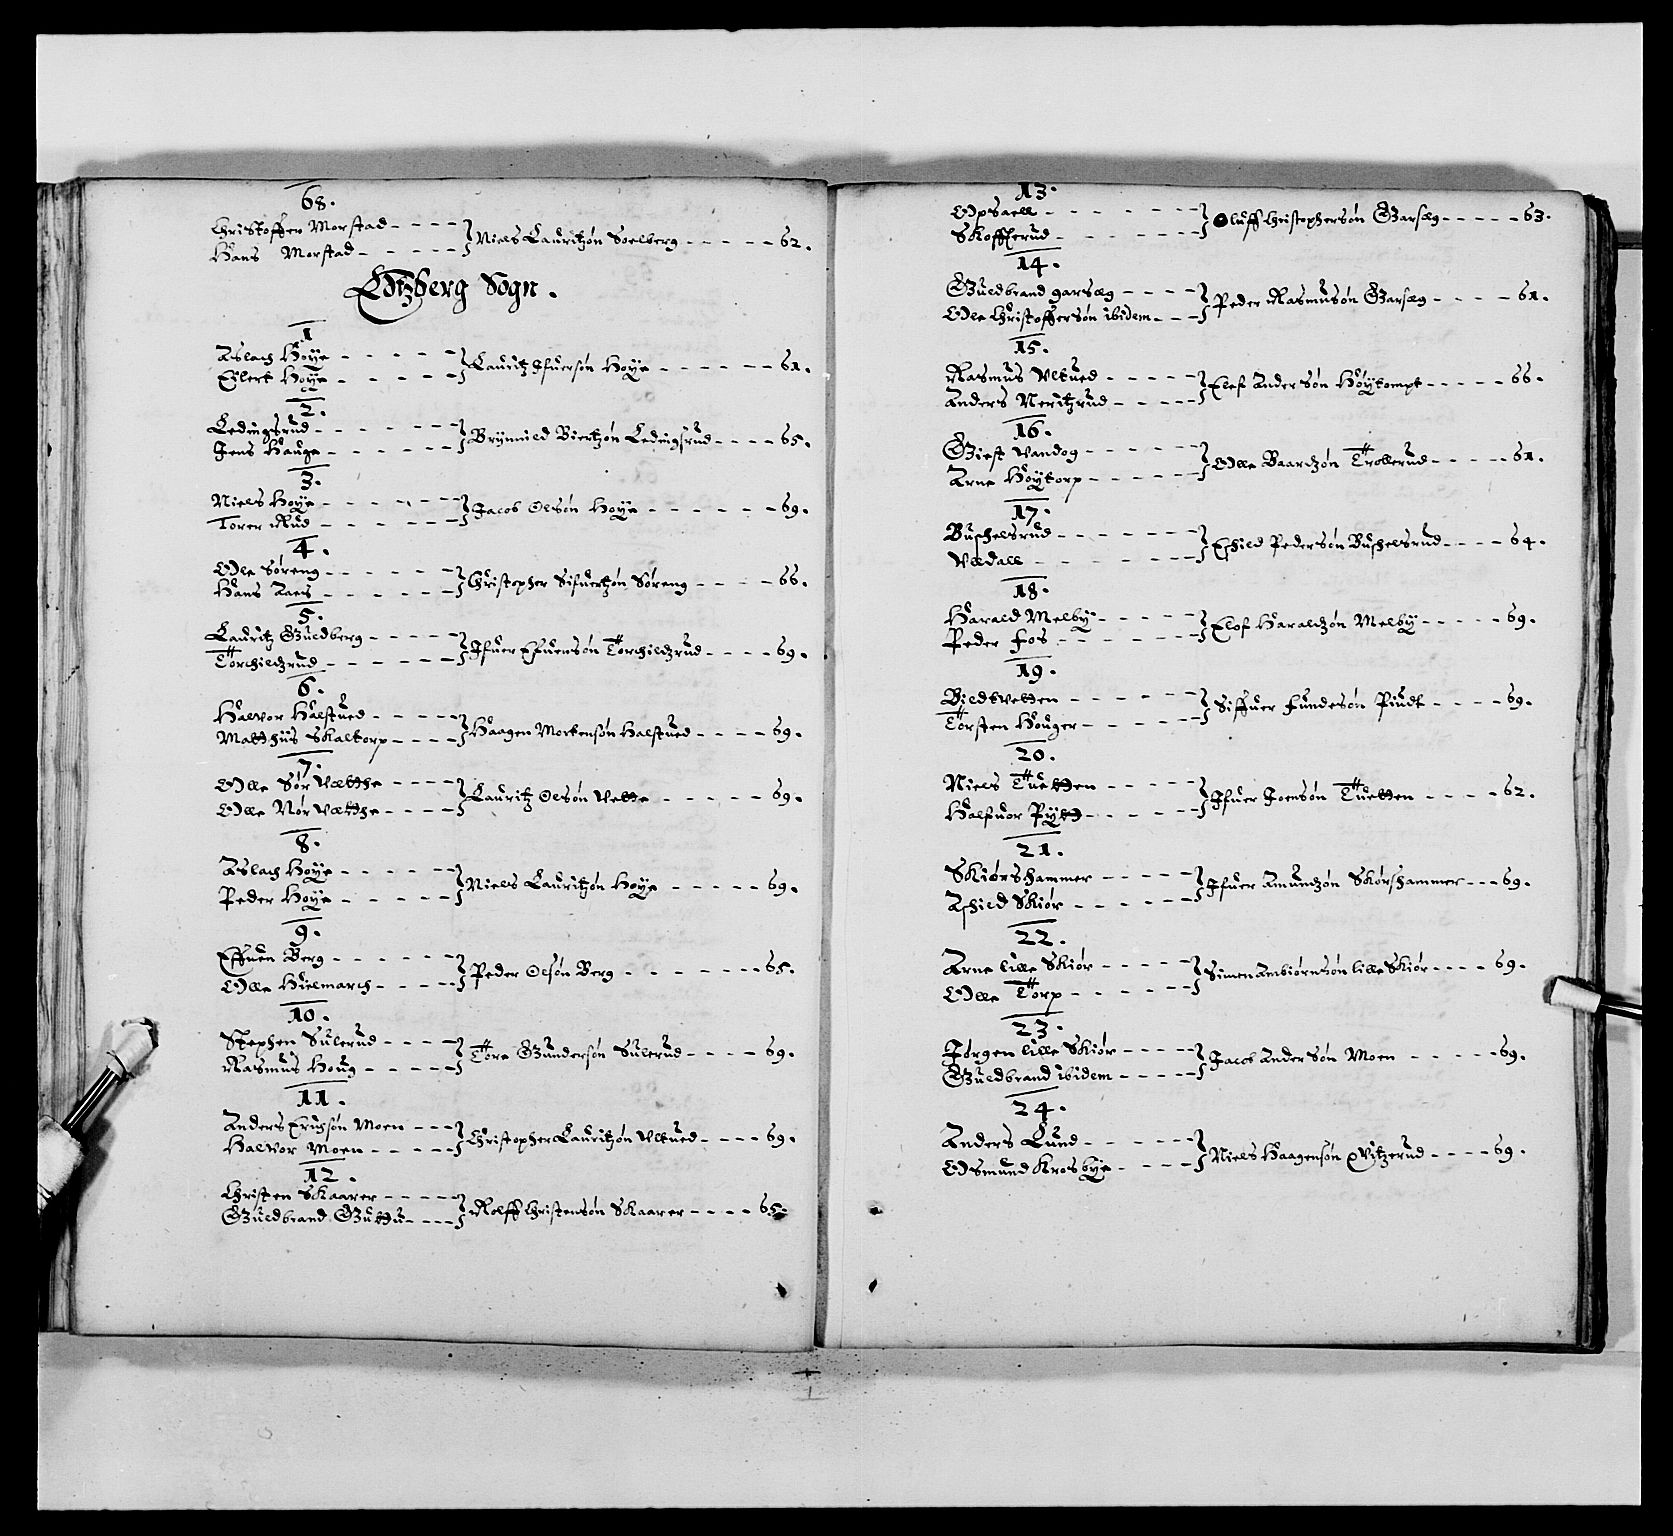 68.
Christoffer Morstad - - - -
Hans Morstad - - - - - } Niels Lauritzøn Soelberg - - - - - 62.
Edtzberg Sogn.
1
Aslach Høye - - - - -
Eilert Høye - - - - - } Lauritz Ifuersøn Høye - - - - - - 61.
2.
Ledingsrud - - - - - -
Jens Hauge - - - - - - } Brynnild Biertzøn Ledingsrud - - - - 65.
3.
Niels Høye - - - - - -
Torer Rud - - - - - - } Jacob Olsøn Høye - - - - - - 69.
4.
Olle Søreng - - - - - -
Hans Aaes - - - - - - } Christopher Sifuertzøn Søreng - - - - 66.
5.
Lauritz Guldberg - - - -
Torchildzrud - - - - - - } Ifuer Efuensøn Torchildzrud - - - - 69.
6.
Halvor Halstued - - - -
Matthiis Skaltorp - - - - } Haagen Mortensøn Halstued - - - - 69.
7.
Olle Sør Vætthe - - - -
Olle Nør Vætthe - - - - } Lauritz Olsøn Vette - - - - - 69.
8.
Aslach Høye - - - - -
Peder Høye - - - - - } Niels Lauritzøn Høye - - - - - 69.
9.
Effuen Berg - - - - - -
Olle Hielmarch - - - - - } Peder Olsøn Berg - - - - - - 65.
10.
Stephen Sulerud - - - -
Rasmus Houg - - - - - } Tore Gundersøn Sulerud - - - - 69.
11.
Anders Erichsøn Moen - - -
Halvor Moen - - - - - } Christopher Lauritzøn Ultued - - - - 69.
12.
Christen Skaarer - - - - -
Guldbrand Guttu - - - - } Rolff Christensøn Skaarer - - - - 65.
13.
Opsaell - - - - - -
Skofflerud - - - - - - } Oluff Christophersøn Garseg - - - - - 63.
14.
Guldbrand garseg - - - -
Olle Christoffersøn ibidem - - - } Peder Rasmusøn Garseg - - - - 61.
15.
Rasmus Ultued - - - - -
Anders Neritzrud - - - - } Elef Andersøn Høytompt - - - - - 66.
16.
Giest Vandog - - - - -
Arne Høytorp - - - - - } Olle Baardzøn Trollerud - - - - - 61.
17.
Buschelsrud - - - - - -
Uldall - - - - - - } Eschild Pedersøn Buschelsrud - - - - 64.
18.
Harald Melby - - - - -
Peder Fos - - - - - - } Elof Haraldzøn Melby - - - - - 69.
19.
Bildtvetten - - - - - -
Torsten Houger - - - - - } Siffuer Fundesøn Piudt - - - - 69.
20.
Niels Tuetten - - - - -
Halfuor Pÿtt - - - - - } Ifuer Joensøn Tuetten - - - - 62.
21.
Skiørshammer - - - - -
Aschild Skiør - - - - - } Ifuer Amundzøn Skørshammer - - - 69.
22.
Arne lille Skiør - - - - -
Olle Torp - - - - - - } Simen Ambiørnsøn lille Skiør - - - - 69.
23.
Jørgen lille Skiør - - - -
Guldbrand ibidem - - - - } Jacob Andersøn Moen - - - - - 69.
24.
Anders Lund - - - - - -
Osmund Krosbye - - - - } Niels Haagensøn Vitzerud - - - - 69.